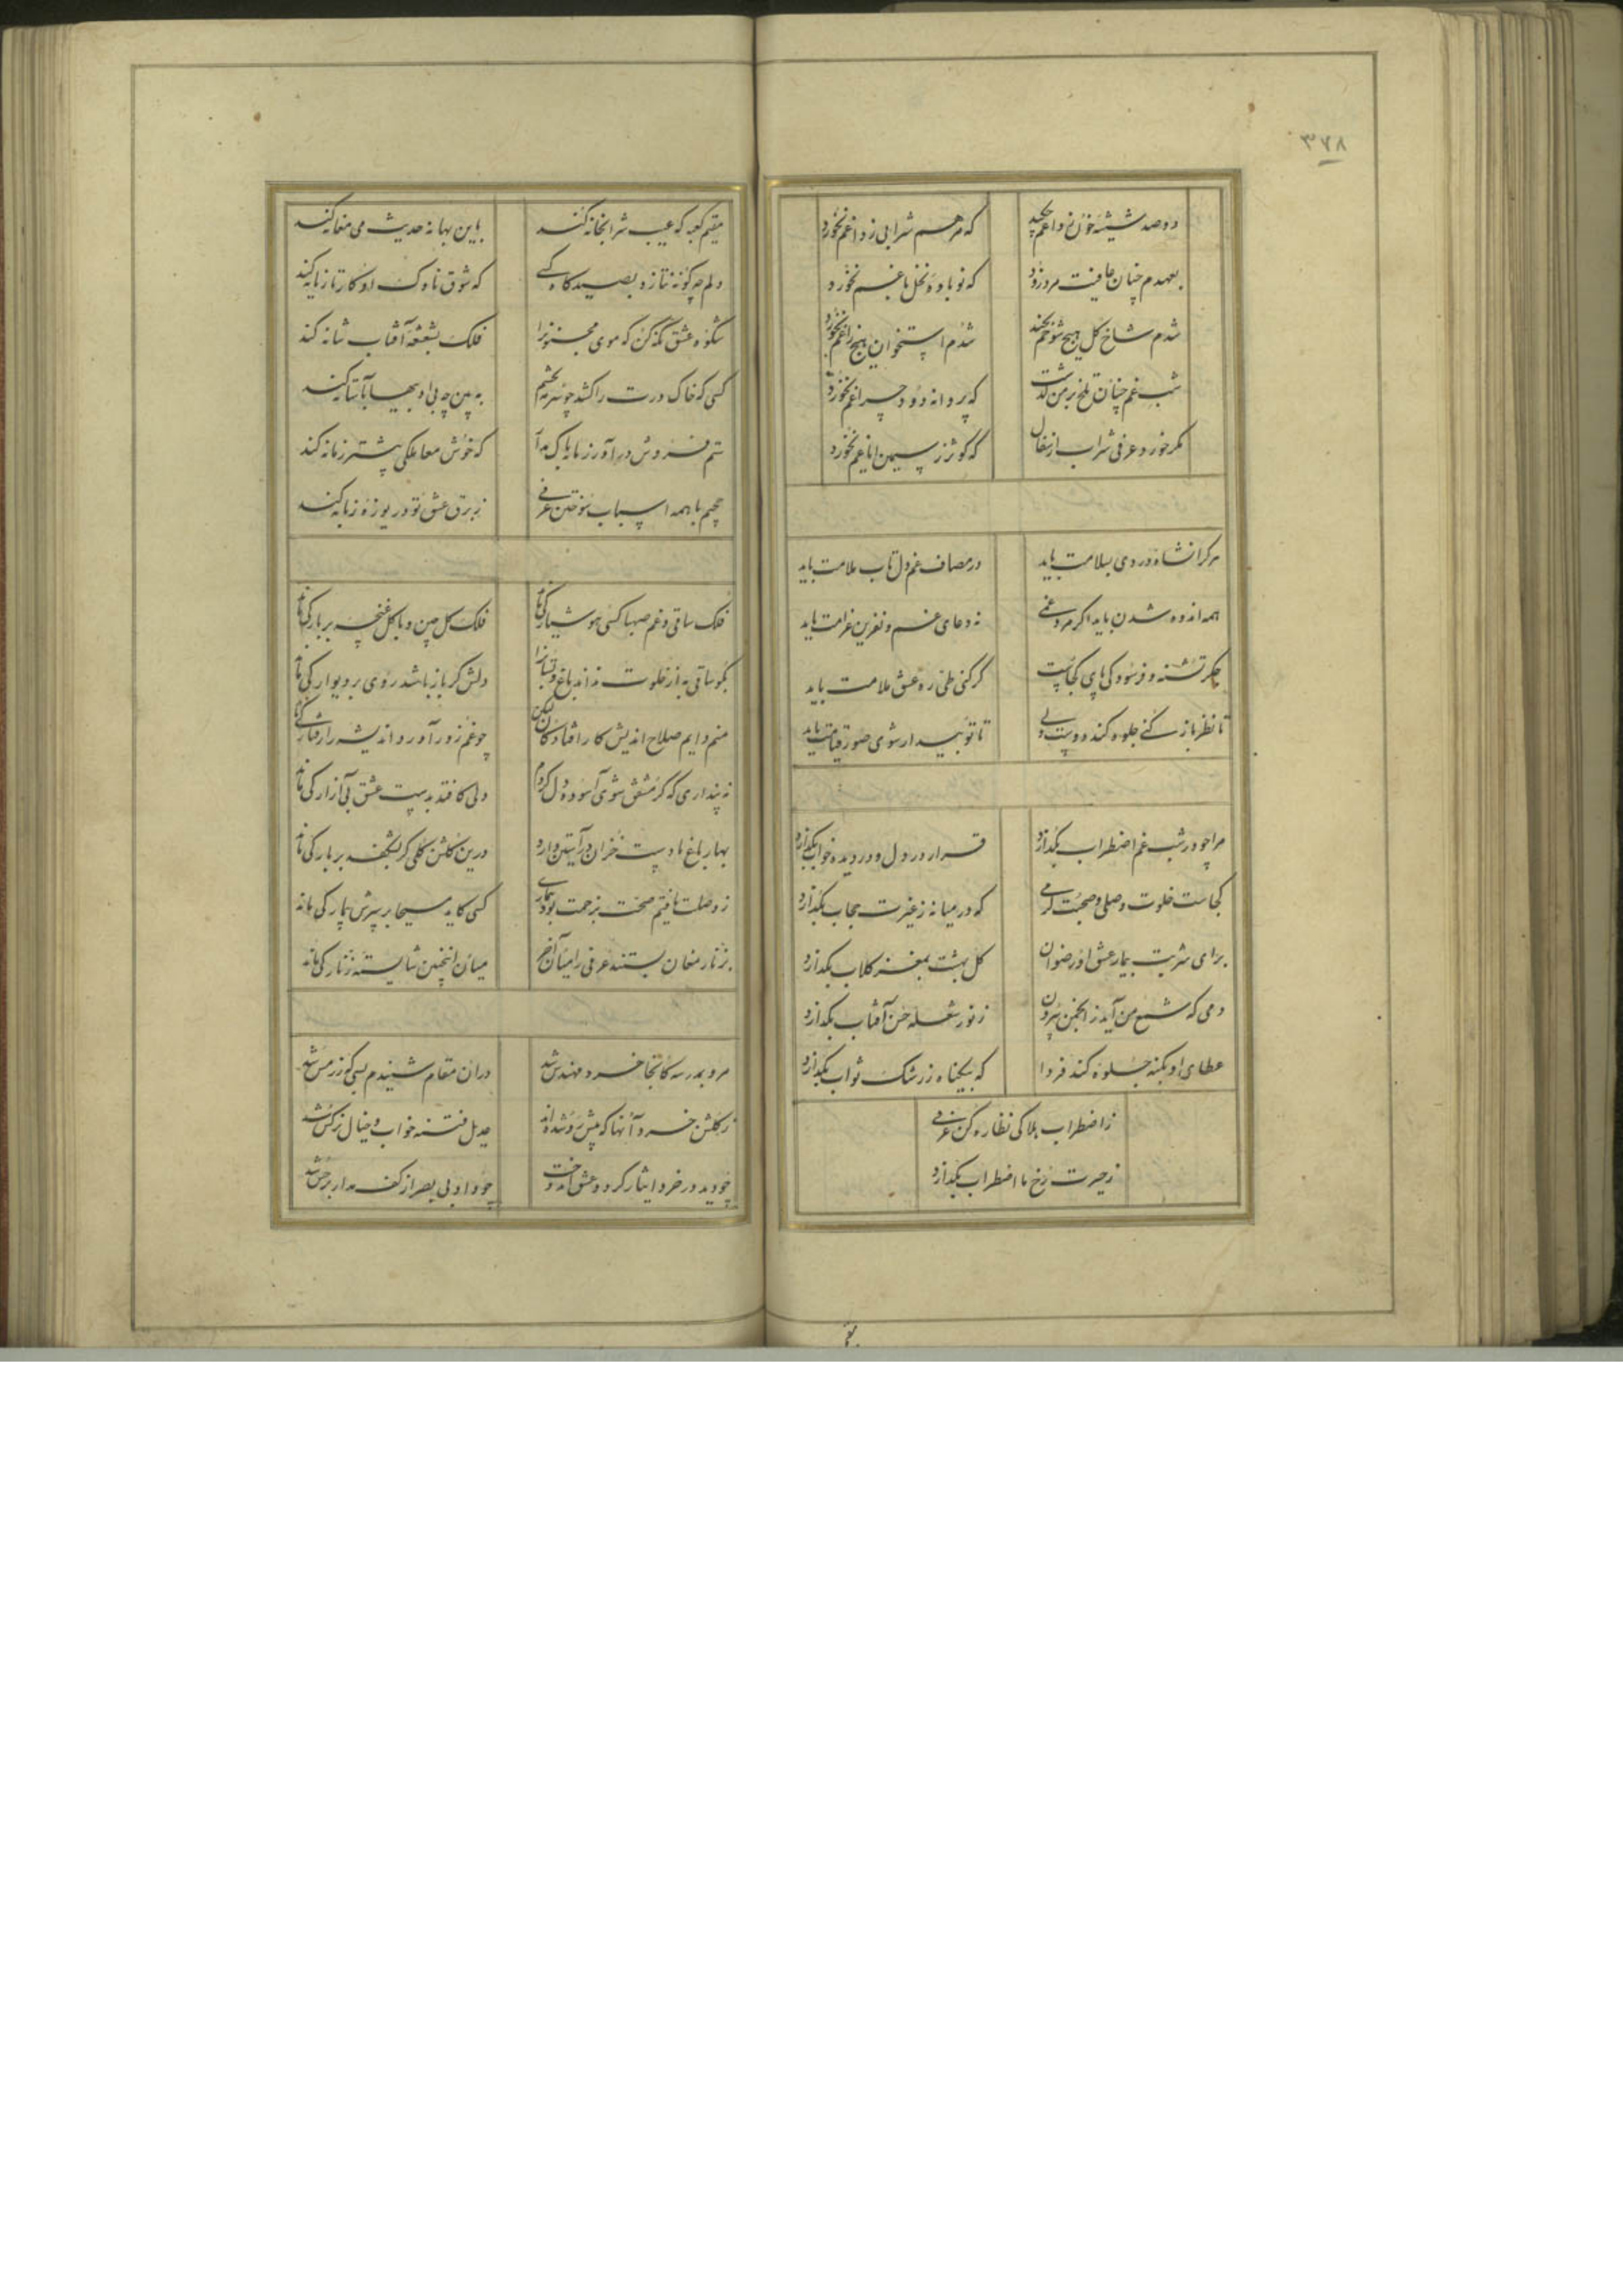 ۳۷۸
دو صد شیشه خون ز داغم چکید که مرهم شرابی ز داغم نخورد
بعهدم چنان عافیت مرد زود که نوباوهٔ نخل باغم نخورد
شدم شاخ گل هیچ شوخم نچید شدم استخوان هیچ زاغم نخورد
شب غم چنان تلخ بر من گذشت که پروانه دود چراغم نخورد
مگر خورد عرفی شراب از سفال که کوثر ز سیمین ایاغم نخورد
هر کرا نشاهٔ دردی بسلامت باید در مصاف غم دل تاب ملامت باید
همه اندوه شدن باید اگر مرد غمی نه دعای غم و نفرین غرامت باید
جگر تشنه و فرسودگی پای کجاست گر کنی طی ره عشق علامت باید
تا نظر باز کنی جلوه کند دوست ولی تا تو بیدار شوی صور قیامت باید
مرا چو در شب غم اضطراب بگدازد قرار در دل و در دیده خواب بگدازد
کجاست خلوت وصلی و صحبت گرمی که در میانه ز غیرت حجاب بگدازد
برای شربت بیمار عشق او رضوان گل بهشت بمغز گلاب بگدازد
دمی که شمع من آید ز انجمن بیرون ز نور شعلهٔ حسن آفتاب بگدازد
عطای او بگنه جلوه کند فردا که بیگناه ز رشک ثواب بگدازد
ز اضطراب بلا کی نظاره کن عرفی
ز حیرت رخ ما اضطراب بگدازد
مقیم
مقیم کعبه که عیب شرابخانه کند باین بهانه حدیث می مغانه کند
دلم چه گونه نتازد بصیدگاه کسی که شوق ناوک او کار تازیانه کند
شکوه عشق نگه کن که موی مجنونرا فلک بشعشعهٔ آفتاب شانه کند
کسی که خاک درت را کشد چو سرمه بچشم
ستم فروش درآور زمانه باک مدار که خوش معاملگی بیشتر زمانه کند
جحیم با همه اسباب سوختن عرفی ز برق عشق تو دریوزهٔ زبانه کند
فلک ساقی و غم صهبا کسی هوشیار کی ماند فلک گلچین و باگل غنچه بر بار کی ماند
بگو ساقی به از خلوت نداند باغ و بستانرا دلش گر باز باشد روی بر دیوار کی ماند
منم دایم صلاح اندیش کار افتادگان لیکن چو غم زور آورد اندیشه را رفتار کی ماند
نه پنداری که گر مشفق شوی آسوده دل گردم دلی کافتد بدست عشق بی آزار کی ماند
بهار باغ ما دست خزان در آستین دارد درین گلشن گلی گر بشکفد بر بار کی ماند
ز وصلت یافتم صحت بزحمت بود بیماری کسی کاید مسیحا بر سرش بیمار کی ماند
بزنار مغان بستند عرفی را میان آخر میان اینچنین شایستهٔ زنار کی ماند
مرو بمدرسه کانجا خرد مهندس شد دران مقام شنیدم بسی که زر مس شد
ز گلشن خرد آنها که پیش رو شده‌اند عدیل فتنهٔ خواب و خیال نرگس شد